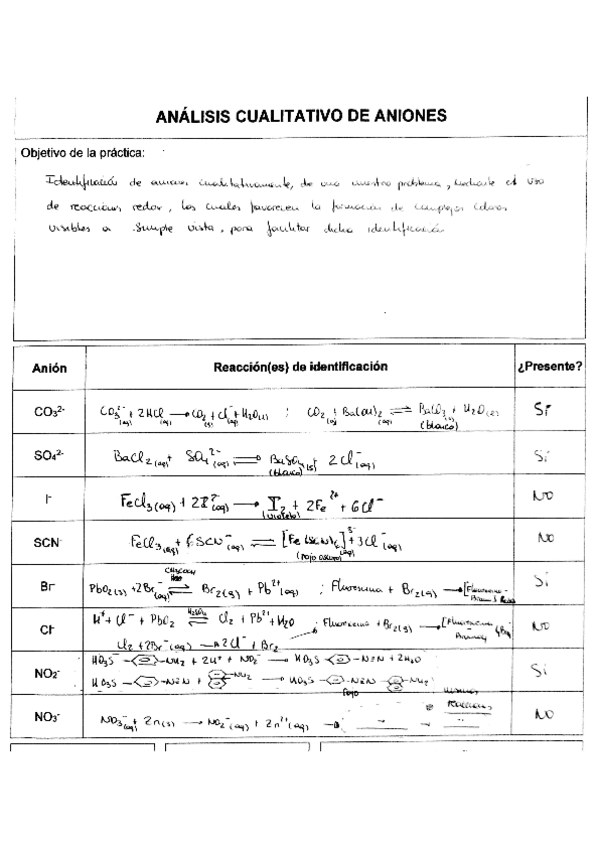 ANÁLISIS CUALITATIVO DE ANIONES
Objetivo de la práctica:
Identificación de aniones cualitativamente, de una muestra problema, mediante el uso
de reacciones redox, los cuales favorecen la formación de complejos
visibles a simple vista, para facilitar dicha identificación
Anión Reacción(es) de identificación ¿Presente?
CO₃²⁻ CO₃²⁻(aq) + 2HCl(aq) → CO₂(g) + Cl⁻ + H₂O(l) ; CO₂(g) + Ba(OH)₂(aq) ⇌ BaCO₃ (blanco) + H₂O(l) Sí
SO₄²⁻ BaCl₂(aq) + SO₄²⁻(aq) ⇌ BaSO₄(s) (blanco) + 2Cl⁻(aq) Sí
I⁻ FeCl₃(aq) + 2I⁻(aq) → I₂ (violeta) + 2Fe²⁺ + 6Cl⁻ NO
SCN⁻ FeCl₃(aq) + 6SCN⁻(aq) ⇌ [Fe(SCN)₆]³⁻(aq) (rojo oscuro) + 3Cl⁻(aq) No
Br⁻ PbO₂(s) + 2Br⁻(aq) ⇌ Br₂(g) + Pb²⁺(aq) ; Fluoresceína + Br₂(g) → Sí
Cl⁻ H⁺ + Cl⁻ + PbO₂ H₂SO₄ ⇌ Cl₂ + Pb²⁺ + H₂O
Cl₂ + 2Br⁻(aq) → 2Cl⁻ + Br₂ ; Fluoresceína + Br₂(g) → NO
NO₂⁻ HO₃S – – NH₂ + 2H⁺ + NO₂⁻ → HO₃S – – N≡N + 2H₂O
HO₃S – – N≡N + – NH₂ → HO₃S – – N=N – – NH₂ rojo Sí
NO₃⁻ NO₃⁻(aq) + Zn(s) → NO₂⁻(aq) + Zn²⁺(aq) mismas reacciones NO